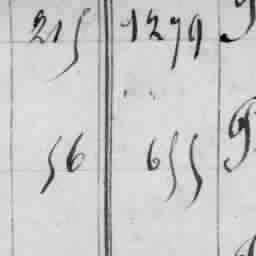 215 1279
56 655